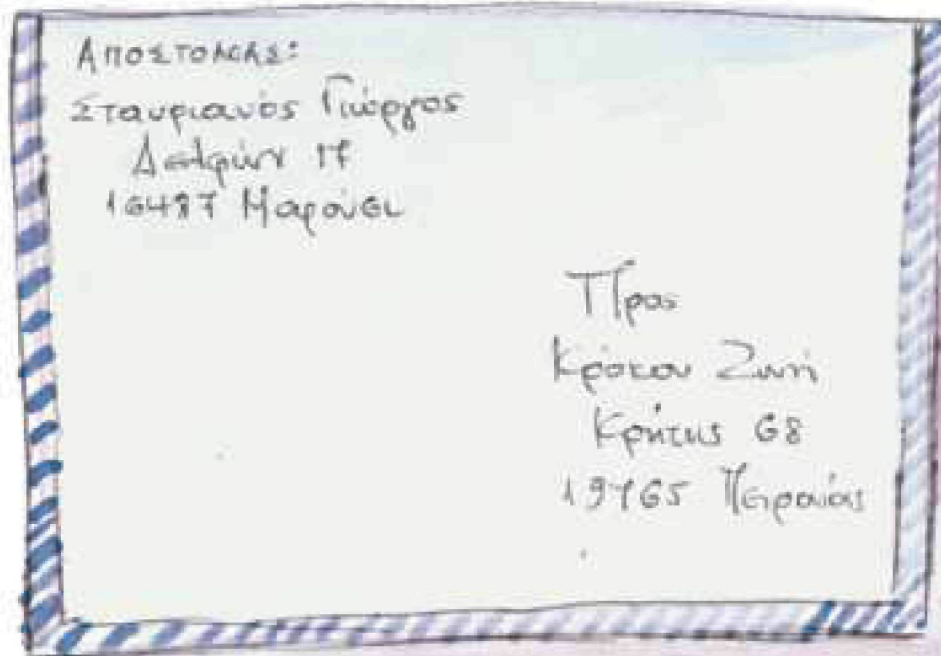 ΑΠΟΣΤΟΛΕΑΣ:
Σταυριανός Γιώργος
Δελφών 17
16487 Μαρούσι
Προς
Κρόκου Ζωή
Κρήτης 68
19765 Πειραιάς